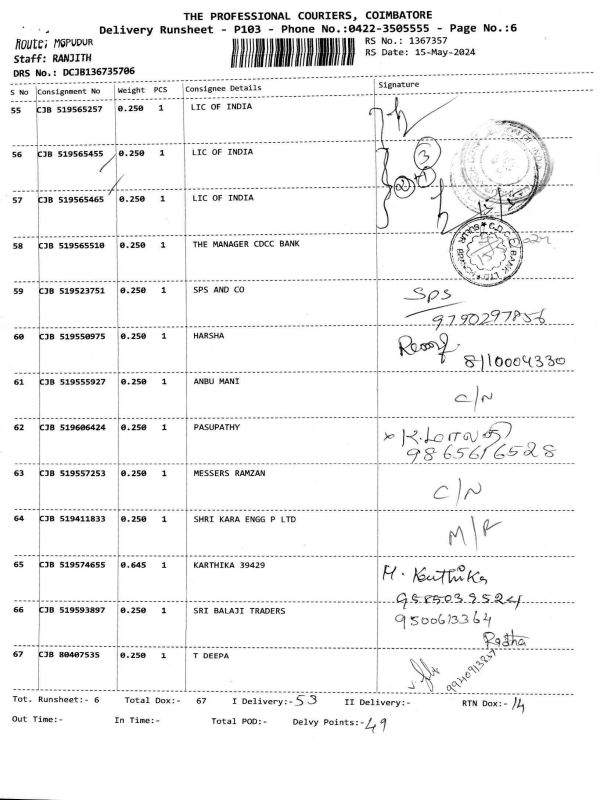 THE PROFESSIONAL COURIERS, COIMBATORE
Delivery Runsheet - P103 - Phone No.:0422-3505555 - Page No.:6
Route; MGPUDUR
RS No.: 1367357
Staff: RANJITH
RS Date: 15-May-2024
DRS No.: DCJB136735706
S No Consignment No Weight PCS Consignee Details Signature
55 CJB 519565257 0.250 1 LIC OF INDIA
56 CJB 519565455 0.250 1 LIC OF INDIA
3
2+1
57 CJB 519565465 0.250 1 LIC OF INDIA
58 CJB 519565510 0.250 1 THE MANAGER CDCC BANK
59 CJB 519523751 0.250 1 SPS AND CO SPS
9790297856
60 CJB 519550975 0.250 1 HARSHA
8110004330
61 CJB 519555927 0.250 1 ANBU MANI C/N
62 CJB 519606424 0.250 1 PASUPATHY x K.மாலதி
9865616528
63 CJB 519557253 0.250 1 MESSERS RAMZAN C/N
64 CJB 519411833 0.250 1 SHRI KARA ENGG P LTD M/R
65 CJB 519574655 0.645 1 KARTHIKA 39429 M. Karthika
9585039524
66 CJB 519593897 0.250 1 SRI BALAJI TRADERS 9500613364
Radha
67 CJB 80407535 0.250 1 T DEEPA
Tot. Runsheet:- 6 Total Dox:- 67 I Delivery:-53 II Delivery:- RTN Dox:-14
Out Time:- In Time:- Total POD:- Delvy Points:-49